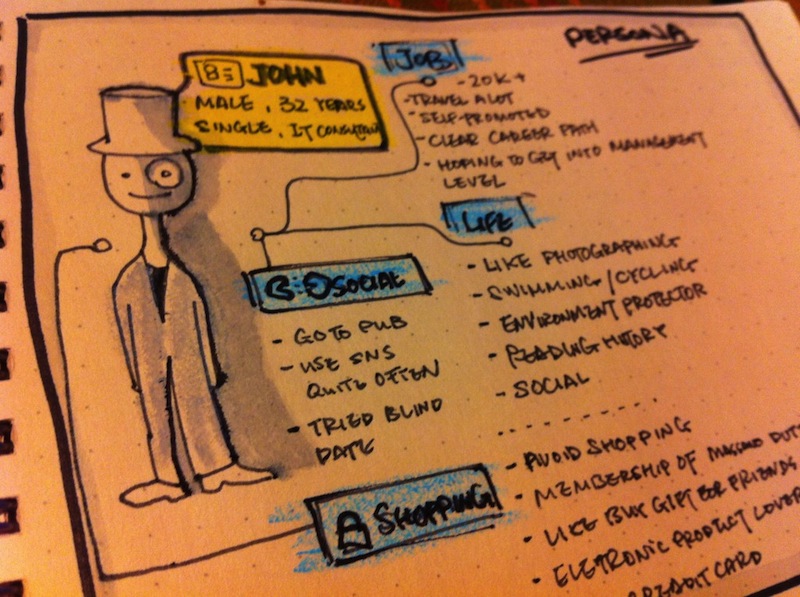 PERSONA
JOHN
MALE, 32 YEARS
SINGLE, IT CONSULTANT
JOB
- 20K +
- TRAVEL A LOT
- SELF-PROMOTED
- CLEAR CAREER PATH
- HOPING TO GET INTO MANAGEMENT
LEVEL
LIFE
- LIKE PHOTOGRAPHING
- SWIMMING / CYCLING
- ENVIRONMENT PROTECTOR
- READING HISTORY
- SOCIAL
SOCIAL
- GO TO PUB
- USE SNS
QUITE OFTEN
- TRIED BLIND
DATE
SHOPPING
- AVOID SHOPPING
- MEMBERSHIP OF MASSIMO DUT
- LIKE BUY GIFT FOR FRIENDS
- ELETRONIC PRODUCT LOVER
CREDIT CARD